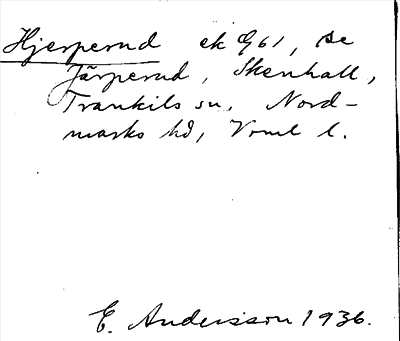 Hjerperud ek 961, se
Järperud, Skenhall,
Trankils sn, Nord-
marks hd, Vrml l.
E. Andersson 1936.